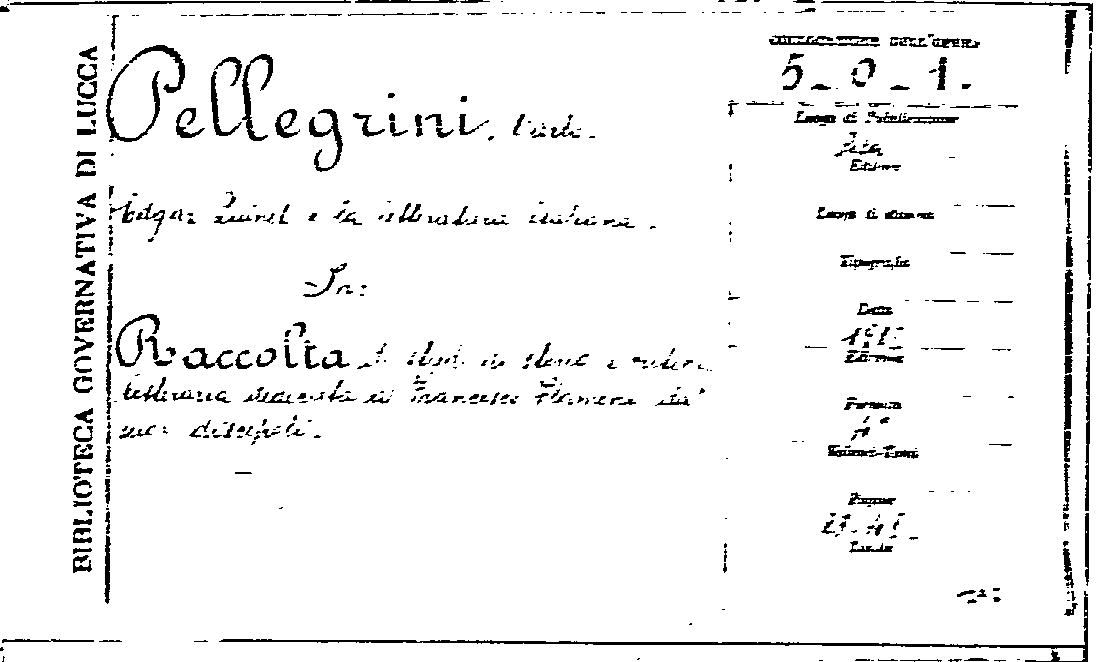 BIBLIOTECA GOVERNATIVA DI LUCCA
Pellegrini, Carlo.
Edgar Quinet e la letteratura italiana.
In:
Raccolta di studi di storia e critica
letteraria dedicata a Francesco Flamini da'
suoi discepoli.
DELL'OPERA
5_0_1.
Luogo di Pubblicazione
Pisa
Editore
Luogo di stampa
Tipografia
Data
Edizione
Formato
Volumi-Tomi
Pagine
Tavole